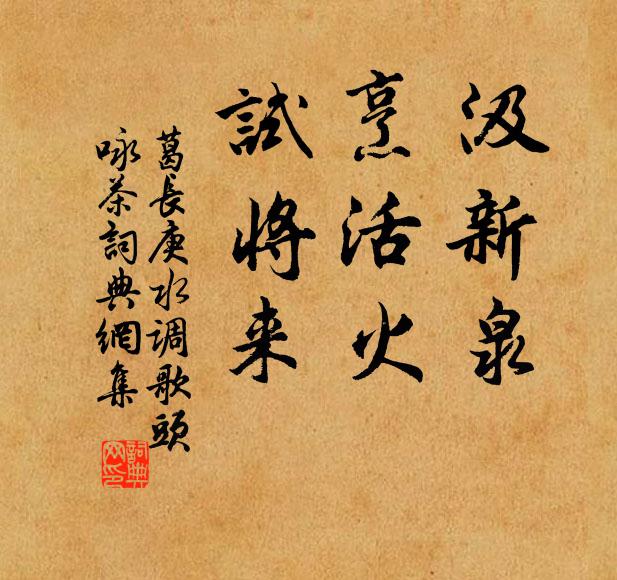 汲新泉
烹活火
試將来
葛長庚水调歌頭
咏茶詞典網集
詞典
网印